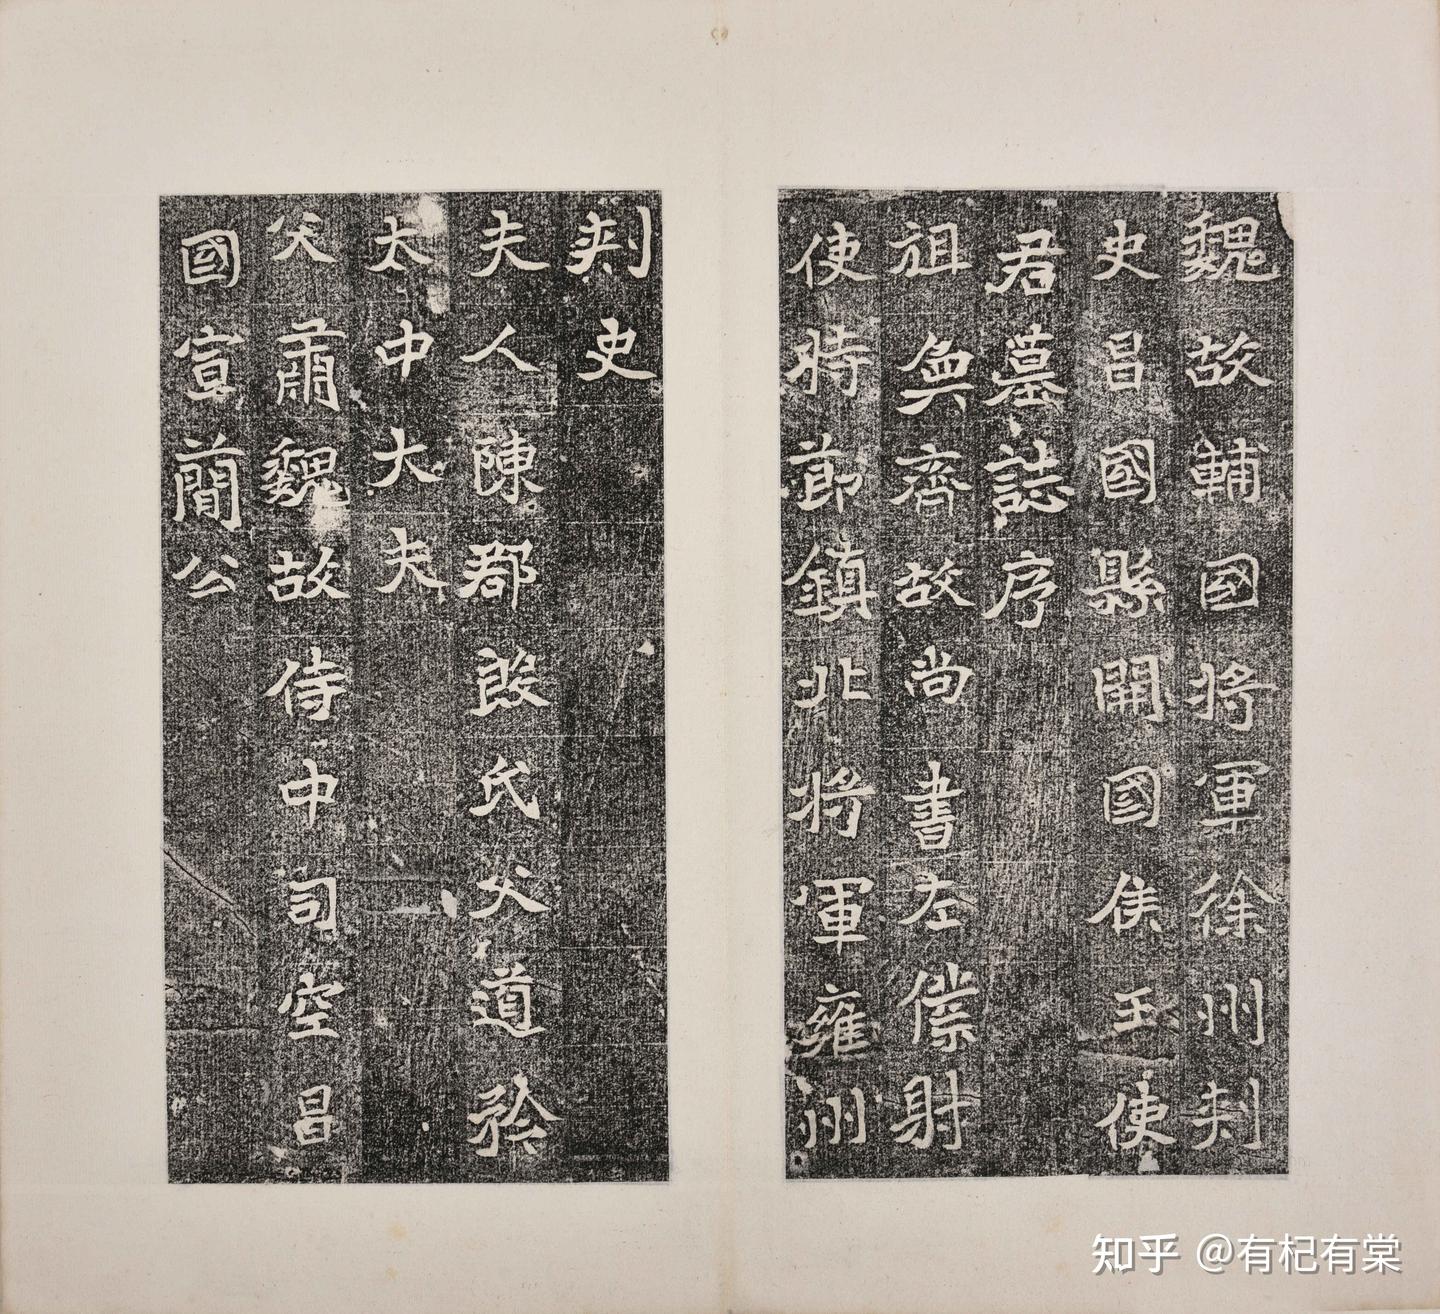 魏故輔國將軍徐州刾
史昌國縣開國侯王使
君墓誌序
祖奐齊故尚書左僕射
使持節鎮北將軍雍州
刾史
夫人陳郡殷氏父道矜
太中大夫
父肅魏故侍中司空昌
國宣簡公
知乎 @有杞有棠